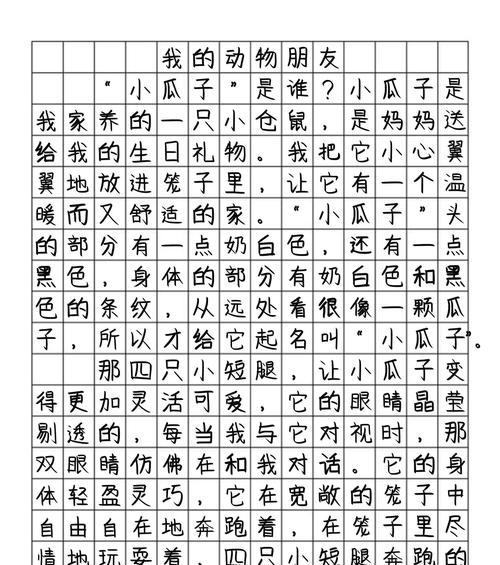 我的动物朋友
“小瓜子”是谁？小瓜子是
我家养的一只小仓鼠，是妈妈送
给我的生日礼物。我把它小心翼
翼地放进笼子里，让它有一个温
暖而又舒适的家。“小瓜子”头
的部分有一点奶白色，还有一点
黑色，身体的部分有奶白色和黑
色的条纹，从远处看很像一颗瓜
子，所以才给它起名叫“小瓜子”。
那四只小短腿，让小瓜子变
得更加灵活可爱，它的眼睛晶莹
剔透的，每当我与它对视时，那
双眼睛仿佛在和我对话。它的身
体轻盈灵巧，它在宽敞的笼子中
自由自在地奔跑着，在笼子里尽
情地玩耍着，四只小短腿奔跑的